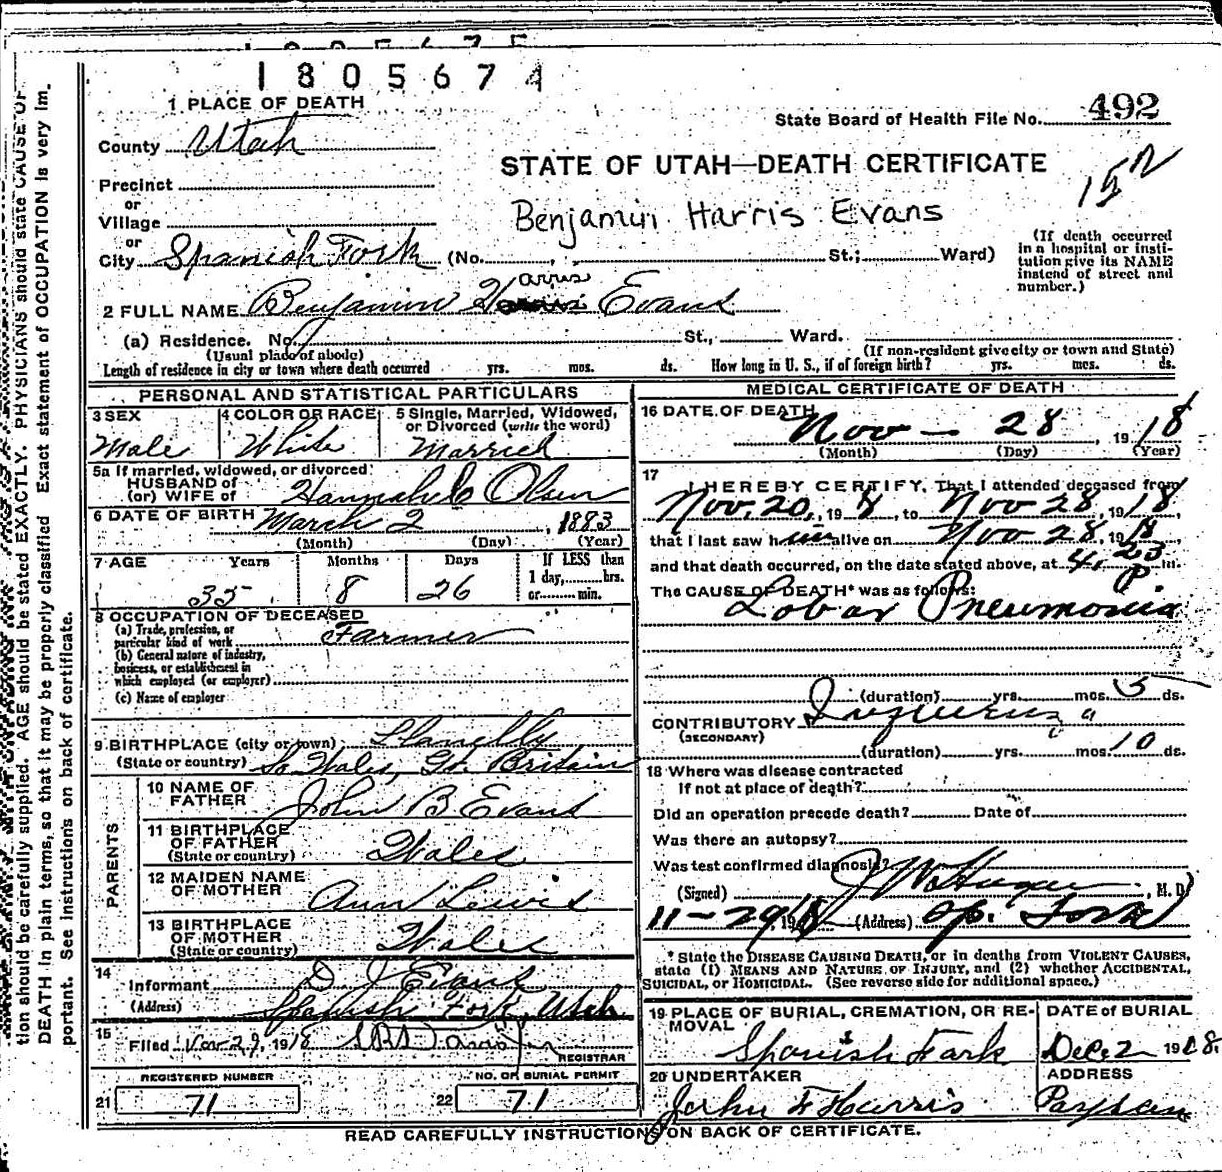 1805674
1 PLACE OF DEATH
State Board of Health File No. 492
County Utah
STATE OF UTAH—DEATH CERTIFICATE
Precinct
or
Village
Benjamin Harris Evans
or
City Spanish Fork (No. , St.; Ward)
(If death occurred in a hospital or institution give its NAME instead of street and number.)
Harris
2 FULL NAME Benjamin Evans
(a) Residence. No. St., Ward.
(Usual place of abode) (If non-resident give city or town and State)
Length of residence in city or town where death occurred yrs. mos. ds. How long in U. S., if of foreign birth? yrs. mos. ds.
PERSONAL AND STATISTICAL PARTICULARS
3 SEX Male
4 COLOR OR RACE White
5 Single, Married, Widowed, or Divorced (write the word) Married
5a If married, widowed, or divorced
HUSBAND of
(or) WIFE of Hannah C Olsen
6 DATE OF BIRTH March 2, 1883
(Month) (Day) (Year)
7 AGE Years Months Days If LESS than
35 8 26 1 day, hrs.
or min.
8 OCCUPATION OF DECEASED
(a) Trade, profession, or particular kind of work Farmer
(b) General nature of industry, business, or establishment in which employed (or employer)
(c) Name of employer
9 BIRTHPLACE (city or town) Llanelly
(State or country) So Wales, Gt. Britain
PARENTS
10 NAME OF FATHER John B Evans
11 BIRTHPLACE OF FATHER (State or country) Wales
12 MAIDEN NAME OF MOTHER Ann Lewis
13 BIRTHPLACE OF MOTHER (State or country) Wales
14 Informant D J Evans
(Address) Spanish Fork, Utah
15 Filed Nov 29, 1918
REGISTRAR
REGISTERED NUMBER
21 71
NO. OF BURIAL PERMIT
22 71
MEDICAL CERTIFICATE OF DEATH
16 DATE OF DEATH
Nov — 28, 1918
(Month) (Day) (Year)
17 I HEREBY CERTIFY, That I attended deceased from
Nov. 20, 1918, to Nov 28, 1918,
that I last saw him alive on Nov 28, 1918,
and that death occurred, on the date stated above, at 4.23 P m.
The CAUSE OF DEATH* was as follows:
Lobar Pneumonia
(duration) yrs. mos. 5 ds.
CONTRIBUTORY Influenza
(SECONDARY)
(duration) yrs. mos. 10 ds.
18 Where was disease contracted
If not at place of death?
Did an operation precede death? Date of
Was there an autopsy?
Was test confirmed diagnosis?
(Signed) , M. D.
11-29, 1918 (Address) Sp. Fork
* State the DISEASE CAUSING DEATH, or in deaths from VIOLENT CAUSES,
state (1) MEANS AND NATURE OF INJURY, and (2) whether ACCIDENTAL,
SUICIDAL, or HOMICIDAL. (See reverse side for additional space.)
19 PLACE OF BURIAL, CREMATION, OR REMOVAL
Spanish Fork
DATE of BURIAL
Dec 2 1918.
20 UNDERTAKER
John F Harris
ADDRESS
Payson
READ CAREFULLY INSTRUCTIONS ON BACK OF CERTIFICATE.
tion should be carefully supplied. AGE should be stated EXACTLY. PHYSICIANS should state CAUSE OF
DEATH in plain terms, so that it may be properly classified Exact statement of OCCUPATION is very im-
portant. See instructions on back of certificate.